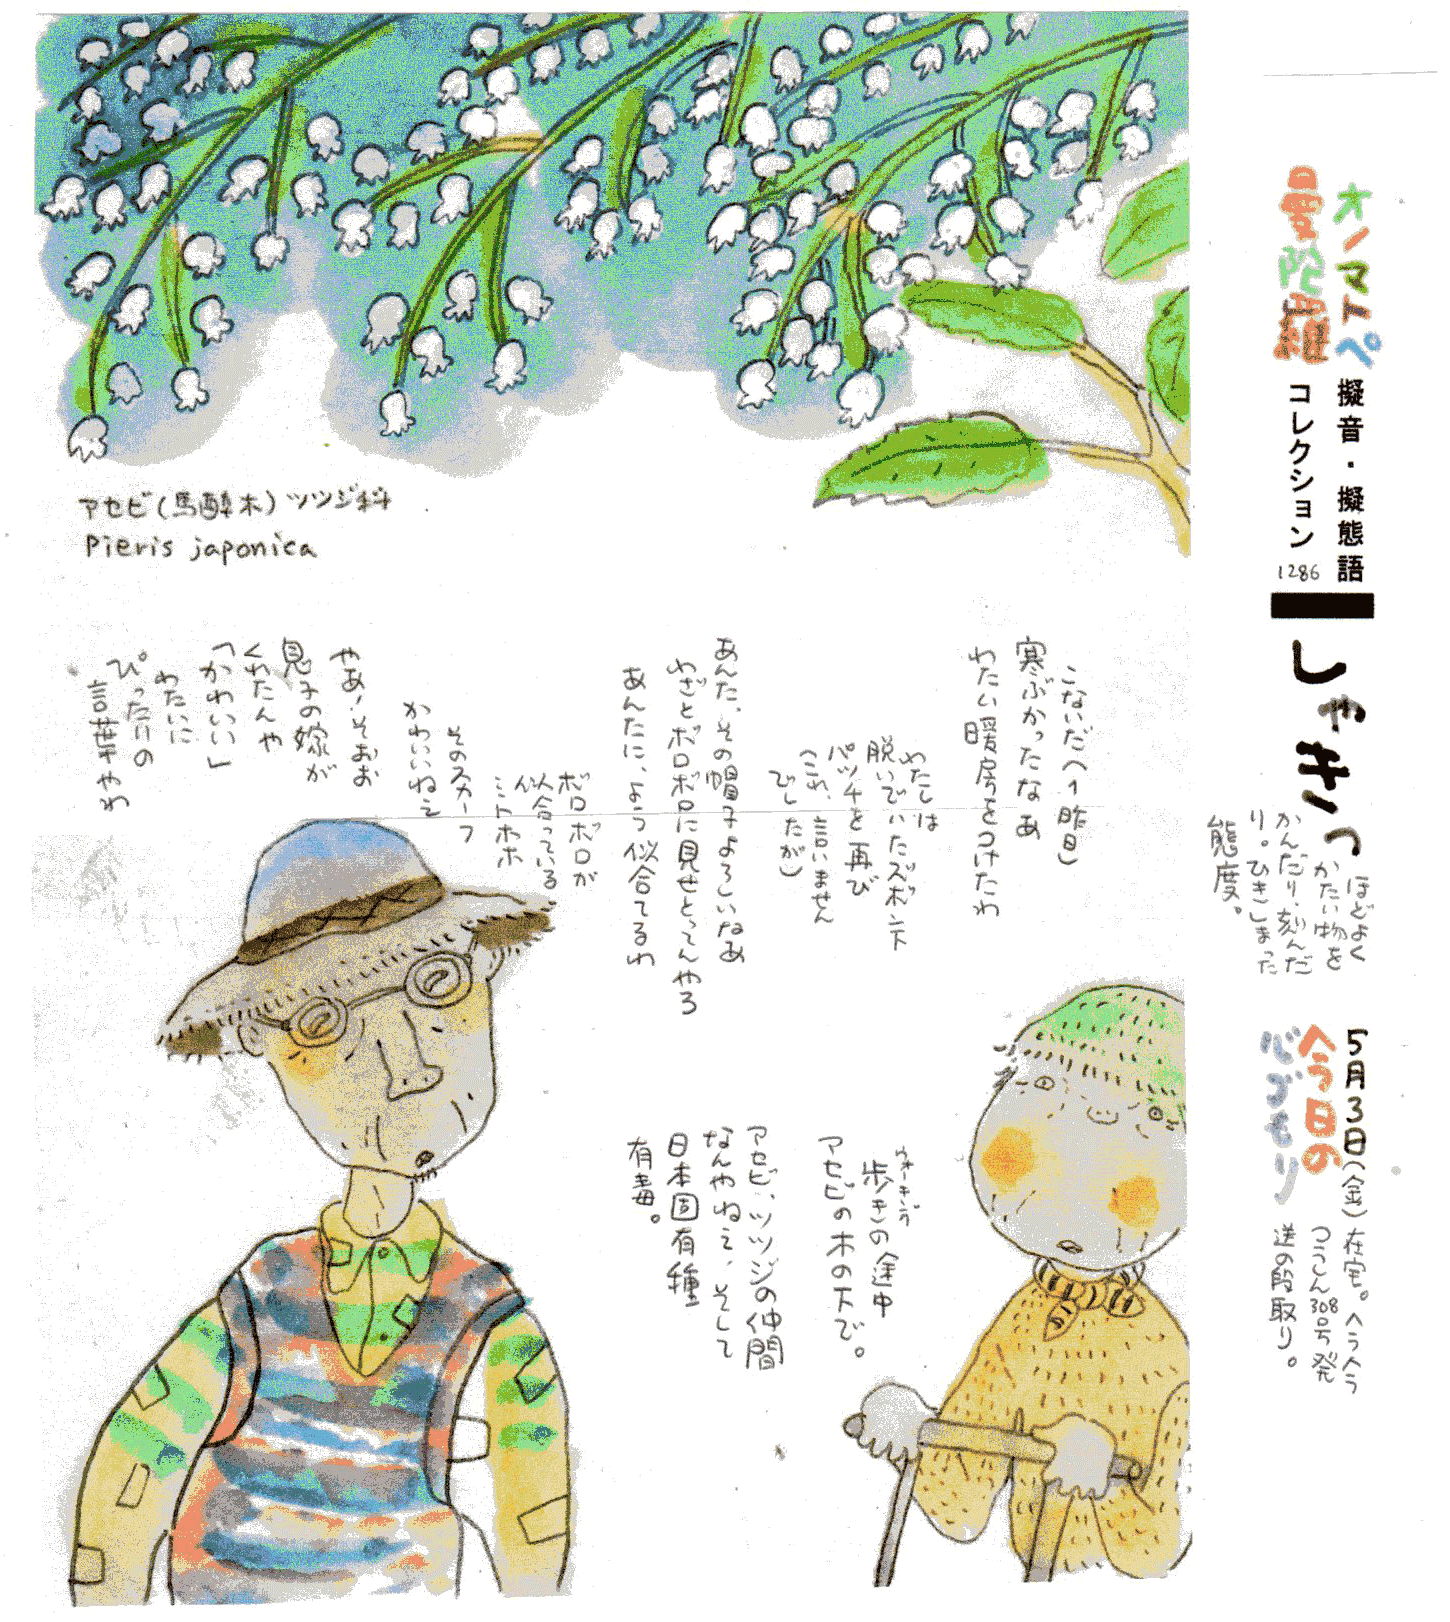 オノマトペ
曼陀羅
擬音・擬態語
コレクション
1286
しゃきっ
ほどよく
かたい物を
かんだり、刻んだ
り。ひきしまった
態度。
5月3日(金)
今日の
心づもり
在宅。ヘラヘラ
つうしん308号発
送の段取り。
アセビ(馬酔木)ツツジ科
Pieris japonica
こないだ(1昨日)
寒ぶかったなあ
わたい暖房をつけたわ
わたしは
脱いでいたズボン下
パッチを再び
(これ、言いません
でしたが)
あんた、その帽子よろしいなあ
わざとボロボロに見せとってんやろ
あんたに、よう似合てるわ
ボロボロが
似合っている
ミトホホ
そのスカーフ
かわいいねえ
やあ!そおお
息子の嫁が
くれたんや
「かわいい」
わたいに
ぴったりの
言葉やわ
ウォーキング
歩きの途中
アセビの木の下で。
アセビ、ツツジの仲間
なんやねえ、そして
日本固有種
有毒。